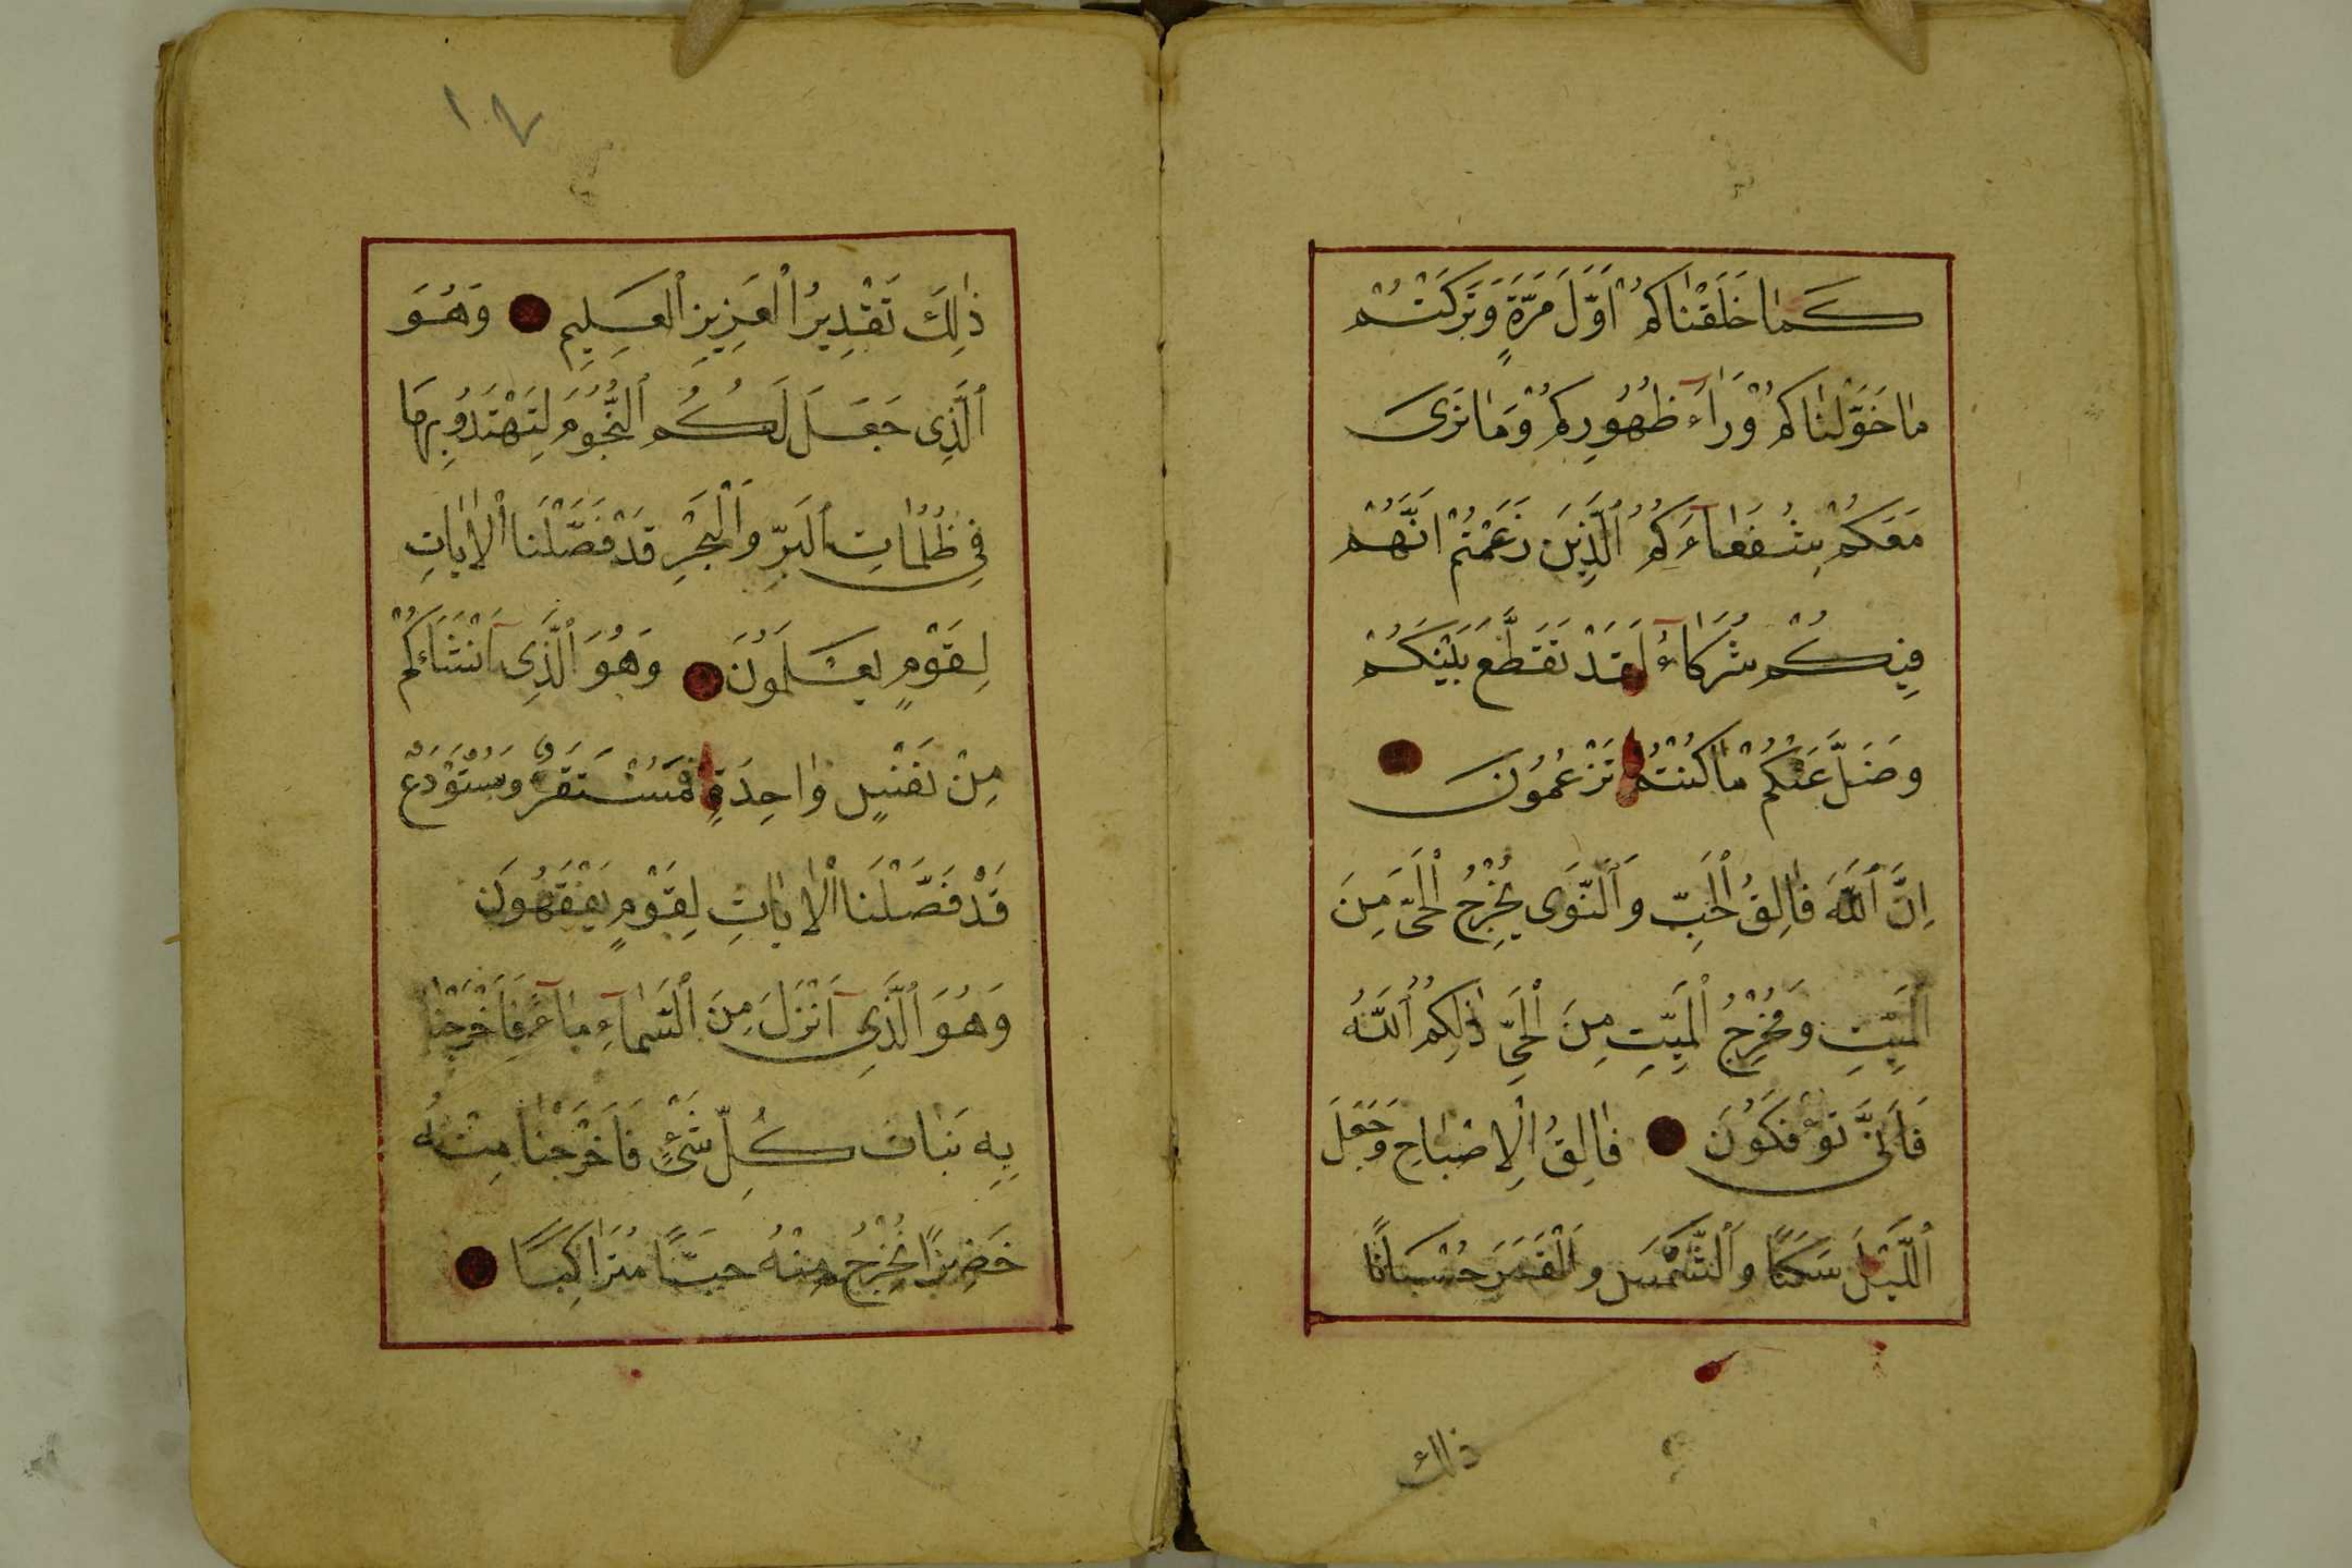 كَمَا خَلَقْنَاكُمْ اَوَّلَ مَرَّةٍ وَتَرَكْتُمْ
مَا خَوَّلْنَاكُمْ وَرَاۤءَ ظُهُورِكُمْ وَمَا نَرٰى
مَعَكُمْ شُفَعَاۤءَكُمُ ٱلَّذِينَ زَعَمْتُمْ اَنَّهُمْ
فِيكُمْ شُرَكَاۤءُ لَقَدْ تَقَطَّعَ بَيْنَكُمْ
وَضَلَّ عَنْكُمْ مَا كُنْتُمْ تَزْعُمُونَ
اِنَّ ٱللّٰهَ فَالِقُ ٱلْحَبِّ وَٱلنَّوَى يُخْرِجُ ٱلْحَىَّ مِنَ
ٱلْمَيِّتِ وَمُخْرِجُ ٱلْمَيِّتِ مِنَ ٱلْحَىِّ ذٰلِكُمُ ٱللّٰهُ
فَاَنّٰى تُؤْفَكُونَ فَالِقُ ٱلْاِصْبَاحِ وَجَعَلَ
ٱللَّيْلَ سَكَنًا وَٱلشَّمْسَ وَٱلْقَمَرَ حُسْبَانًا
ذلك
١٠٧
ذٰلِكَ تَقْدِيرُ ٱلْعَزِيزِ ٱلْعَلِيمِ وَهُوَ
ٱلَّذِى جَعَلَ لَكُمُ ٱلنُّجُومَ لِتَهْتَدُو بِهَا
فِى ظُلُمَاتِ ٱلْبَرِّ وَٱلْبَحْرِ قَدْ فَصَّلْنَا ٱلْاٰيَاتِ
لِقَوْمٍ يَعْلَمُونَ وَهُوَ ٱلَّذِىۤ اَنْشَاَكُمْ
مِنْ نَفْسٍ وَاحِدَةٍ فَمُسْتَقَرٌّ وَمُسْتَوْدَعٌ
قَدْ فَصَّلْنَا ٱلْاٰيَاتِ لِقَوْمٍ يَفْقَهُونَ
وَهُوَ ٱلَّذِىۤ اَنْزَلَ مِنَ ٱلسَّمَاۤءِ مَاۤءً فَاَخْرَجْنَا
بِهِ نَبَاتَ كُلِّ شَىْءٍ فَاَخْرَجْنَا مِنْهُ
خَضِرًا نُخْرِجُ مِنْهُ حَبًّا مُتَرَاكِبًا